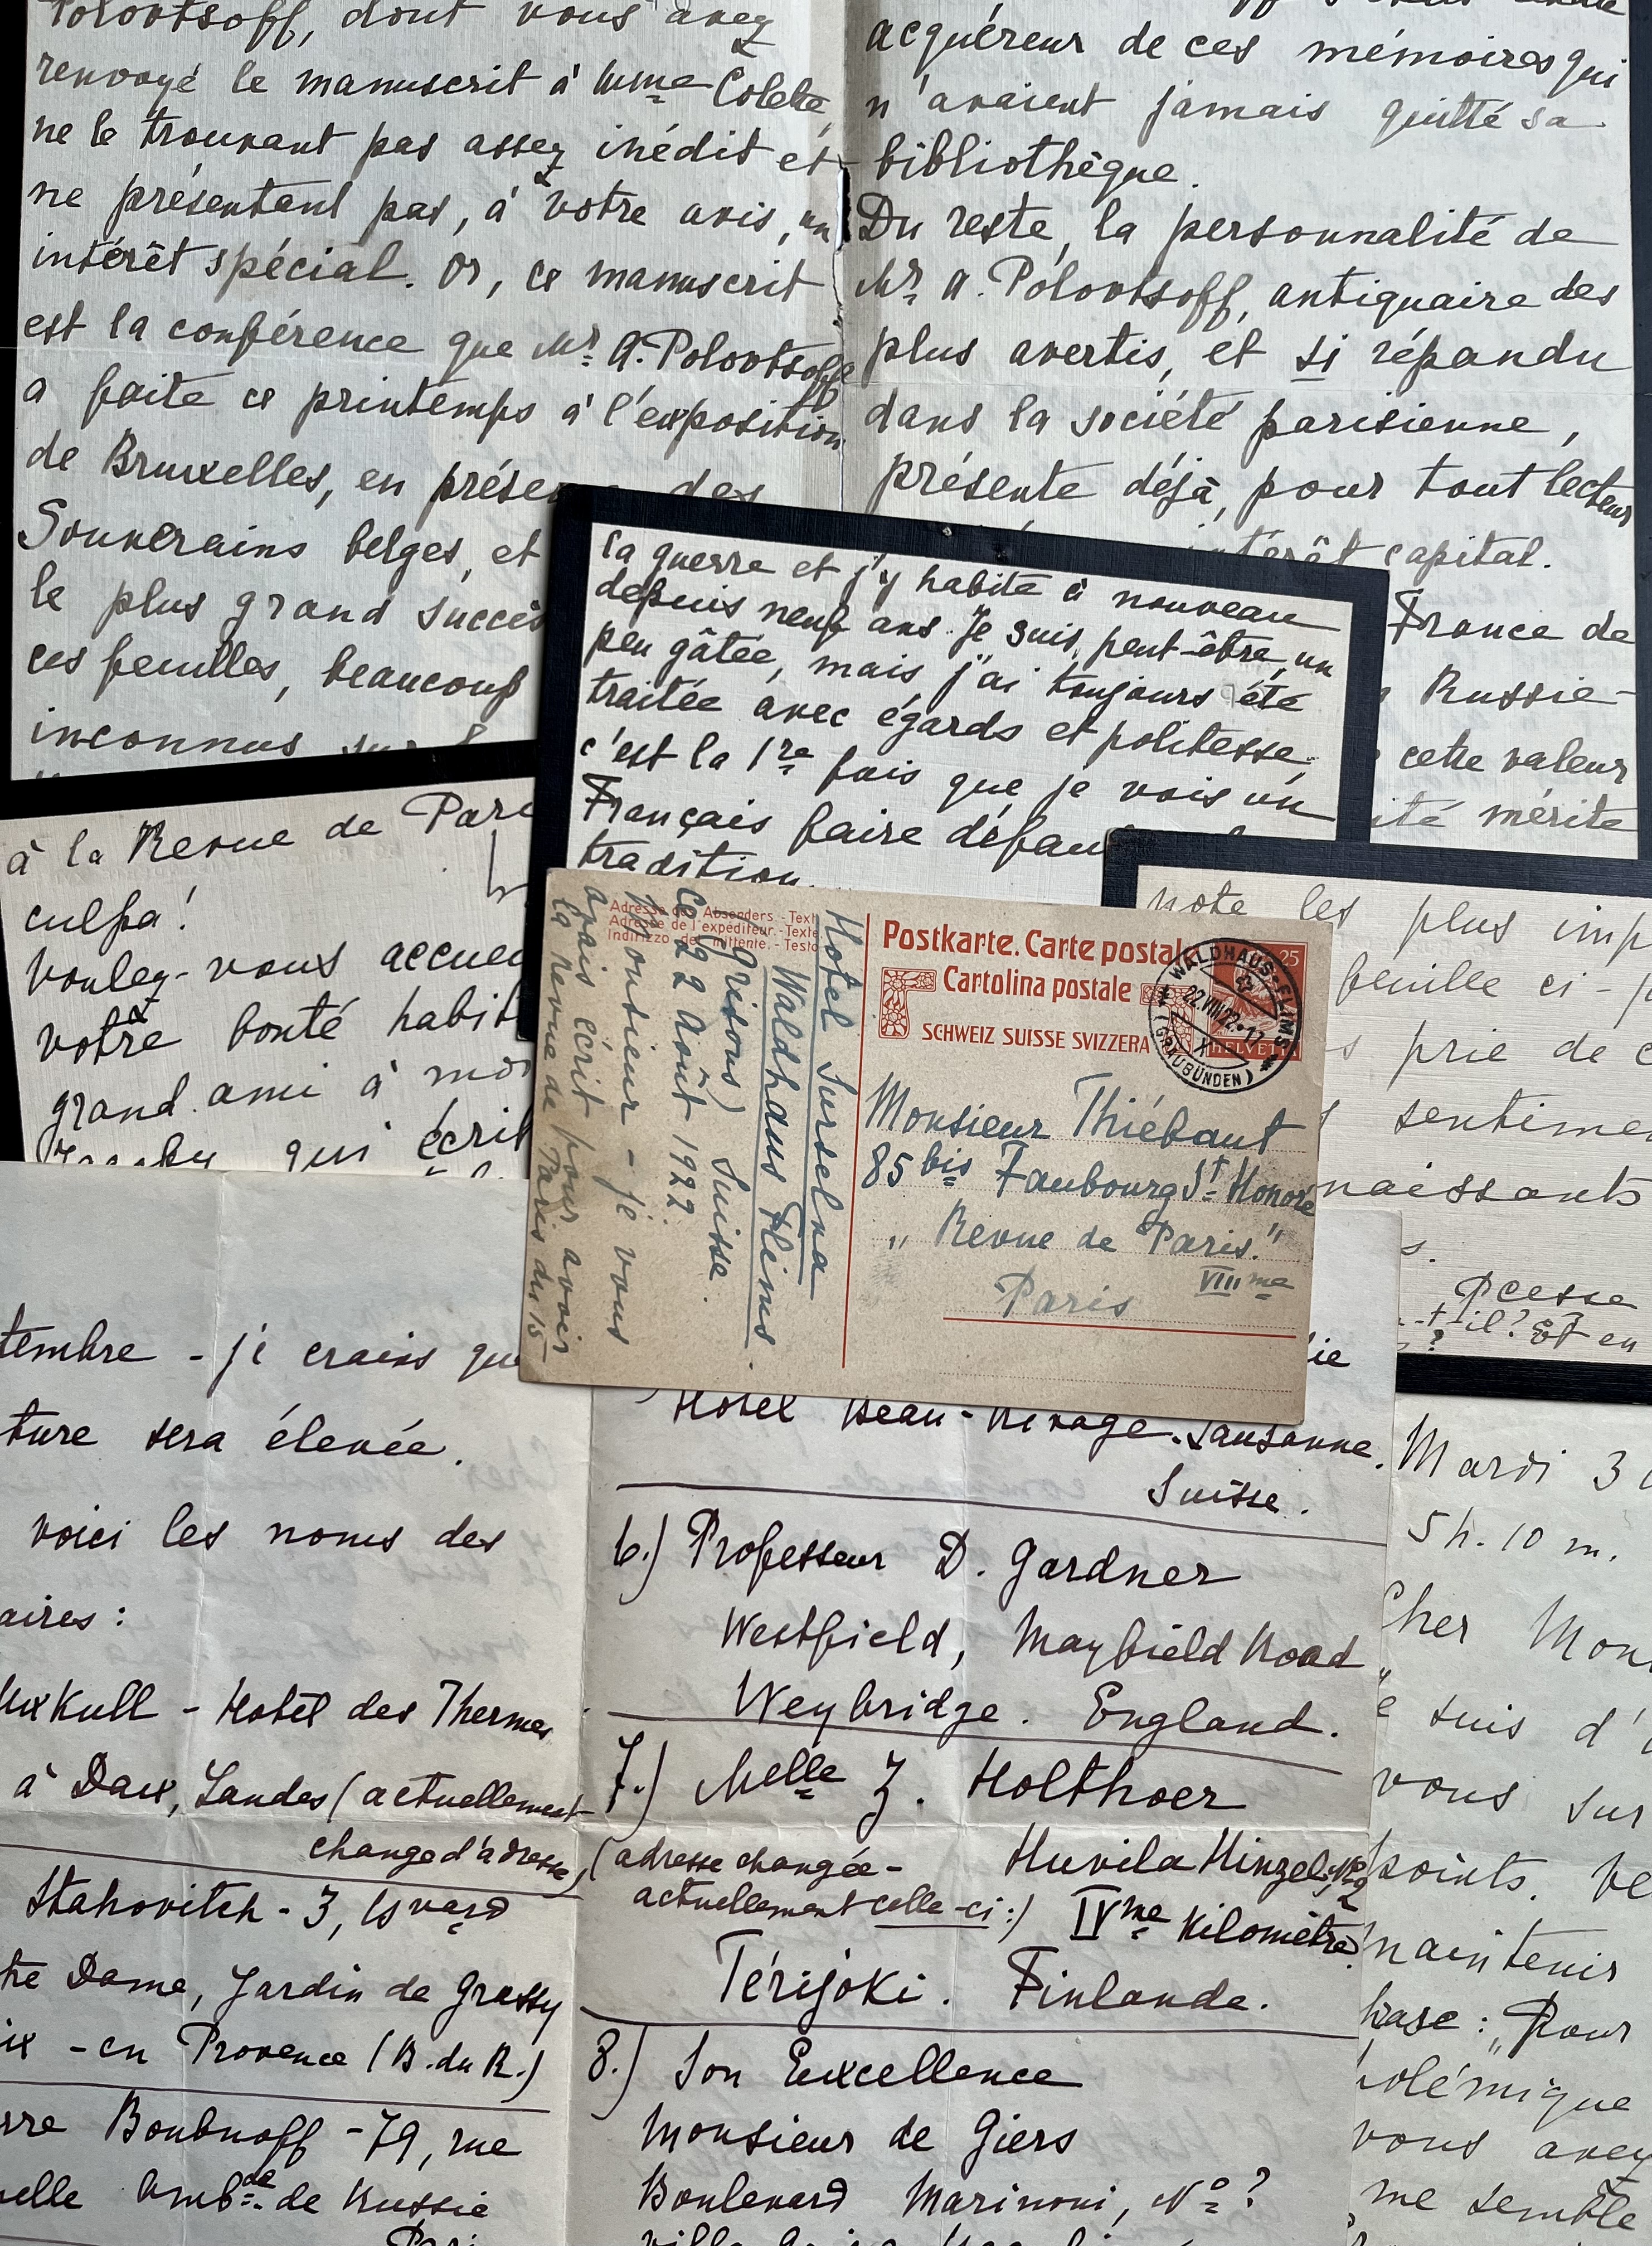 Polovtsoff, dont vous avez
renvoyé le manuscrit à Mme Colette,
ne le trouvant pas assez inédit et
ne présentant pas, à votre avis, un
intérêt spécial. Or, ce manuscrit
est la conférence que Mr. A. Polovtsoff
a faite ce printemps à l'exposition
de Bruxelles, en présen des
Souverains belges, et
le plus grand succès
ces feuilles, beaucoup
inconnus sur
acquéreur de ces mémoires qui
n'avaient jamais quitté sa
bibliothèque.
Du reste, la personnalité de
Mr. A. Polovtsoff, antiquaire des
plus avertis, et si répandu
dans la société parisienne,
présente déjà, pour tout lecteur
intérêt capital.
France de
Russie-
cette valeur
ité mérite
la guerre et j'y habite à nouveau
depuis neuf ans. Je suis, peut-être, un
peu gâtée, mais j'ai toujours été
traitée avec égards et politesse,
c'est la 1re fois que je vois un
Français faire défau
tradition.
à la Revue de Pari
culpa!
Voulez-vous accuei
votre bonté habit
grand ami à mo
qui écrit
note les plus imp
feuille ci-j
s prie de c
sentime
naissants
s.
Pcesse
-t-il? Et en
?
Adresse des Absenders. - Text
Adresse de l'expéditeur. - Texte
Indirizzo del mittente. - Testo
Hotel Surselva
Waldhaus Flims
(Grisons) Suisse.
Ce 22 Août 1922
Monsieur - je vous
avais écrit pour avoir
la Revue de Paris du 15
Postkarte. Carte postale
Cartolina postale
SCHWEIZ SUISSE SVIZZERA
25
HELVETIA
WALDHAUS-FLIMS
22.VIII.22.-17
X
(GRAUBÜNDEN)
Monsieur Thiébaut
85 bis Faubourg St. Honoré
"Revue de Paris."
VIIIme
Paris
tembre - je crains que
ture sera élevée.
voici les noms des
aires:
Uxkull - Hotel des Thermes
à Dax, Landes (actuellement
change d'adresse)
Stahovitch - 3,
tre Dame, Jardin de Grassy
ix-en Provence (B. du R.)
rre Boubnoff - 79, rue
elle Ambde. de Russie
Paris
ie
Hotel Beau-Rivage. Lausanne.
Suisse.
6.) Professeur D. Gardner
Westfield, Mayfield Road
Weybridge. England.
7.) Melle Z. Holthoer
(adresse changée-
actuellement celle-ci:)
Huvila Hinzel, No 2
IVme Kilomètre.
Térijoki. Finlande.
8.) Son Excellence
Monsieur de Giers
Boulevard Marinoni, No?
Mardi 3
5 h. 10 m.
Cher Mon
suis d'
vous sur
points. Ve
maintenir
hrase: "Pour
olémique
vous avez
me semble